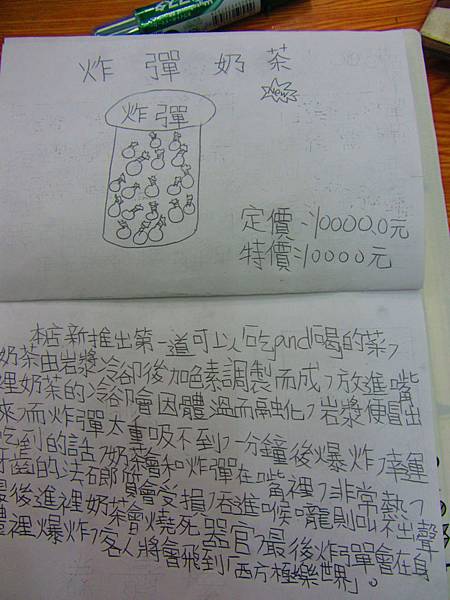 炸彈奶茶
New
炸彈
定價:10000.0元
特價:10000元
本店新推出第一道可以「吃and喝」的菜,
奶茶由岩漿冷卻後加色素調製而成,放進嘴
裡奶茶的冷卻會因體溫而融化,岩漿便冒出
來,而炸彈太重吸不到,一分鐘後爆炸,幸運
吃到的話,奶茶會和炸彈在嘴裡,非常熱,
牙齒的法瑯質會受損,吞進喉嚨則叫不出聲
最後進裡奶茶會燒死器官,最後炸彈會在身
體裡爆炸,客人將會飛到「西方極樂世界」。